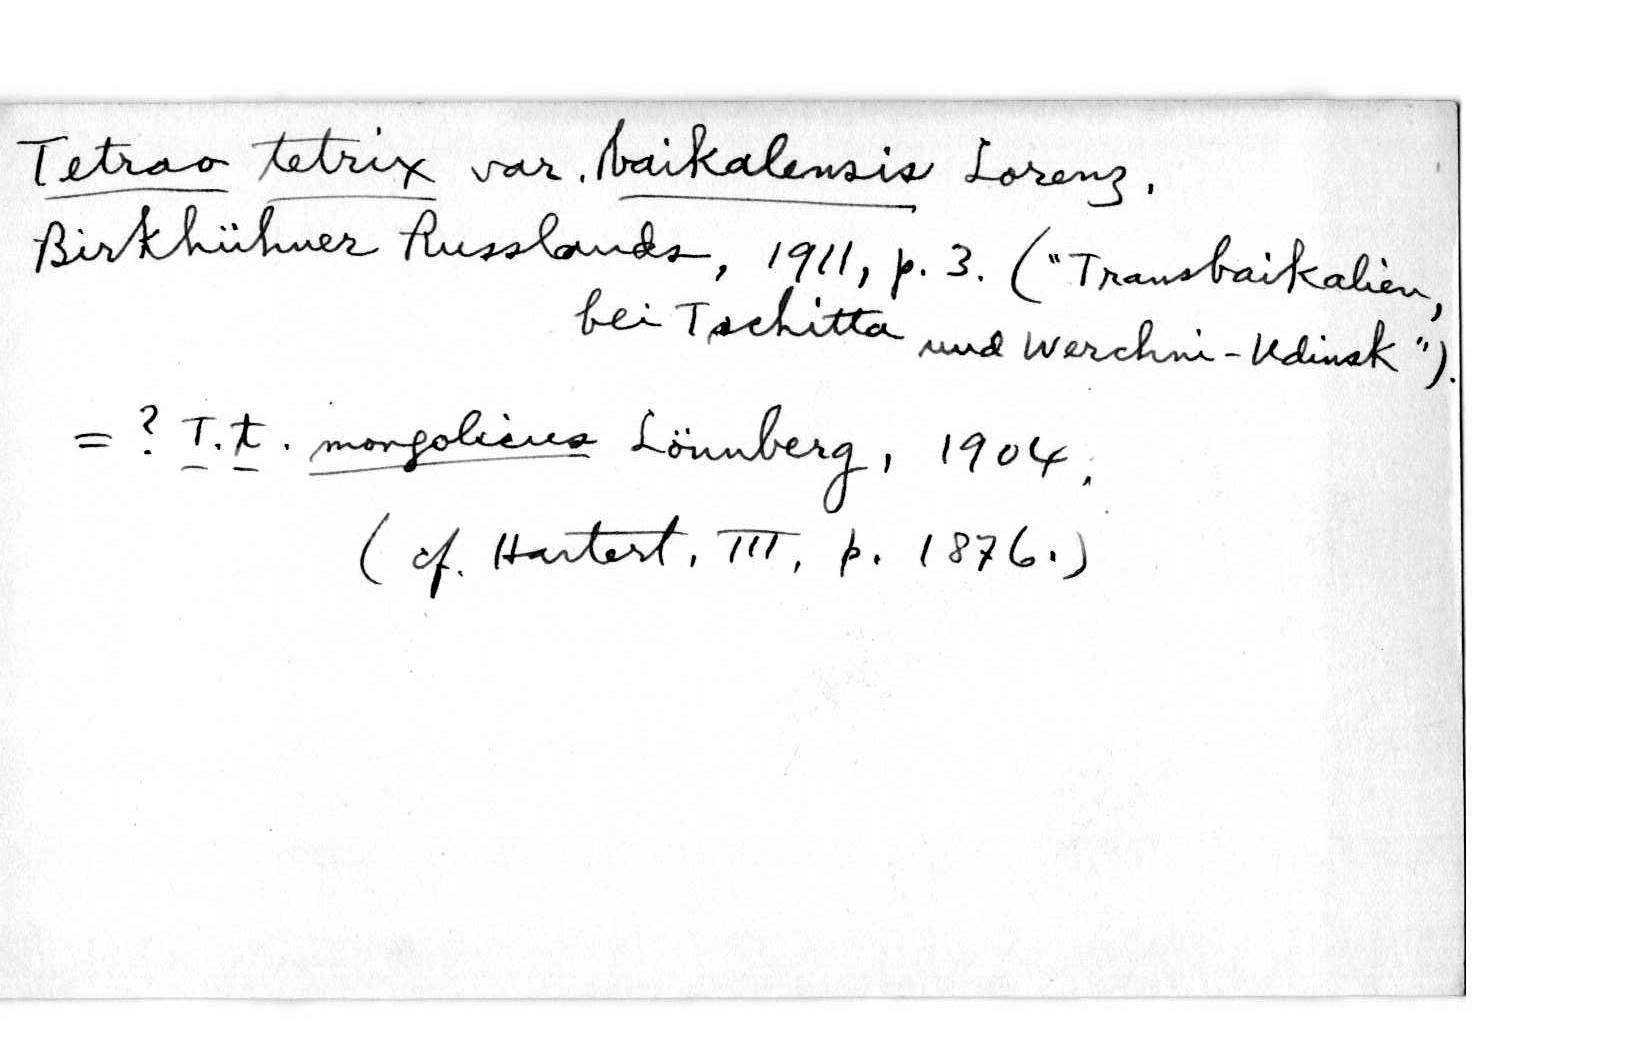 Tetrao tetrix var. baikalensis Lorenz,
Birkhühner Russlands, 1911, p. 3. ("Transbaikalien,
bei Tschitta und Werchni-Udinsk").
= ? T. t. mongolicus Lönnberg, 1904.
(cf. Hartert, III, p. 1876.)